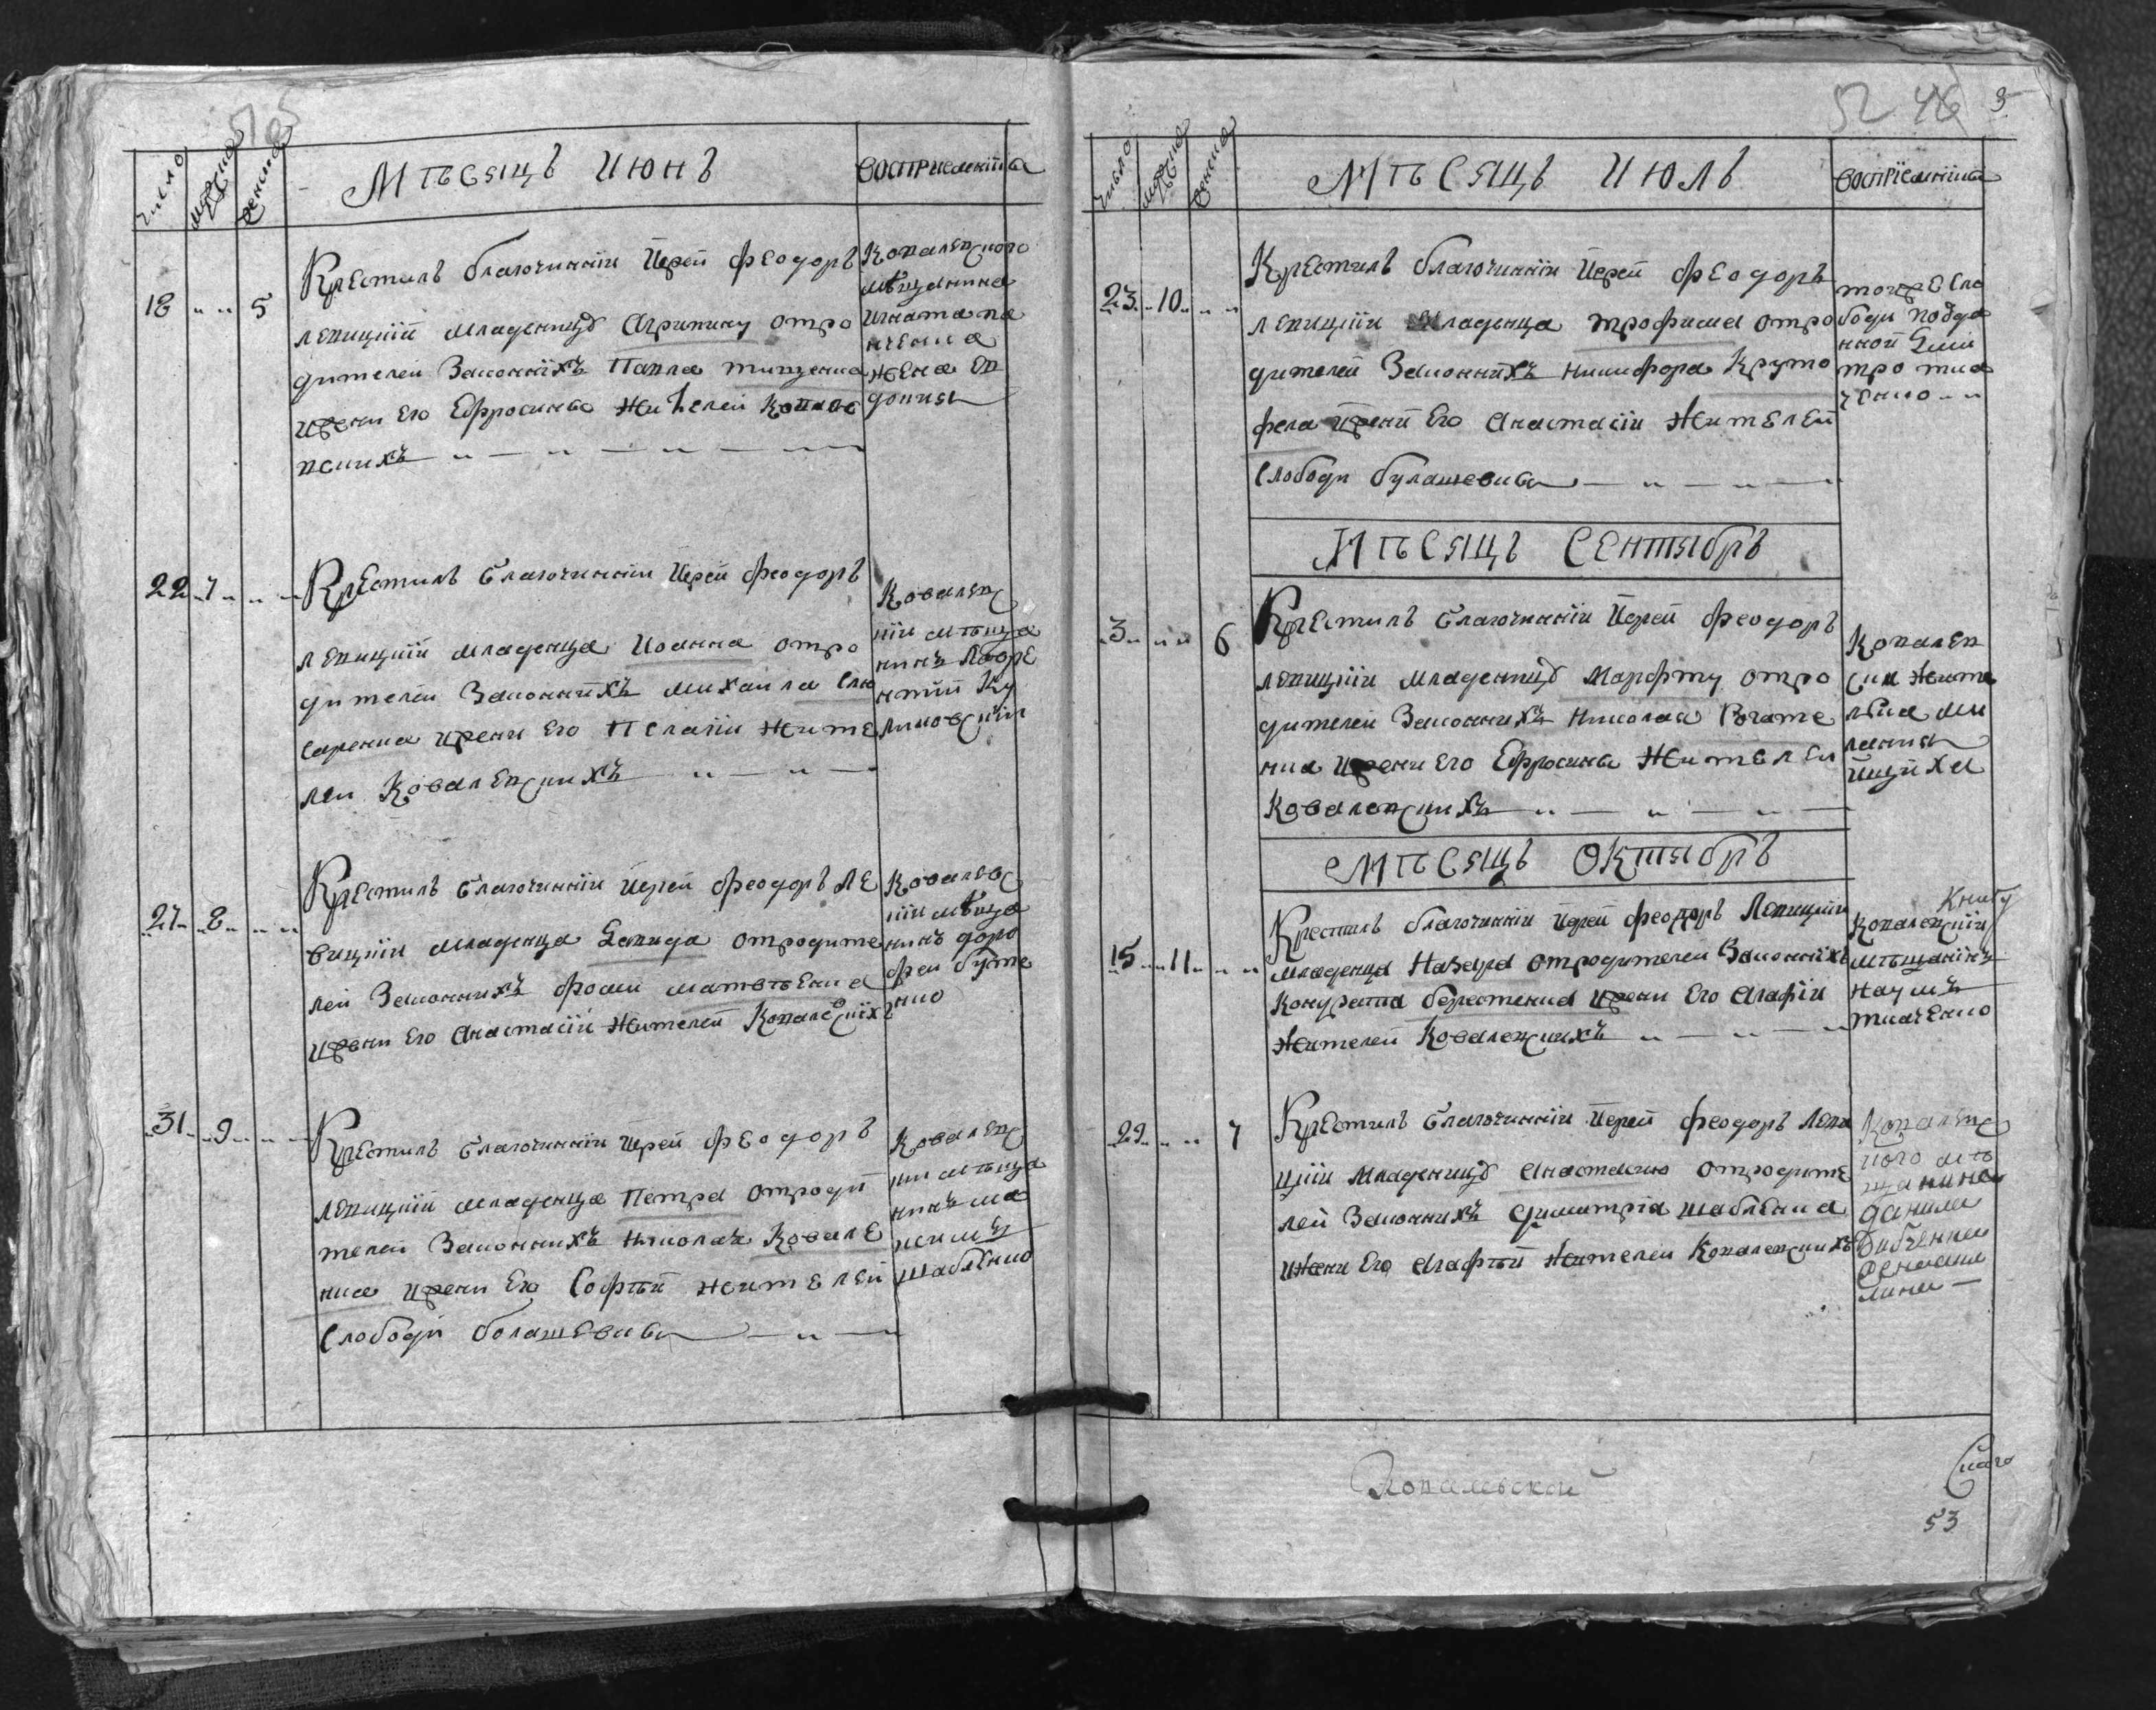 число
мужеска
женска
Мѣсяцъ Июнь
Восприемники
18 5
Крестилъ благочинній Иерей Феодоръ
левицкій младеницу Агрипину отро
дителей Законнихъ Павла тищенка
ижени Его Ефросинии Жителей Ковале
вскихъ
Ковалевского
мѣщанина
Игната
жена Ев
докия
22 7
Крестилъ благочинній Иерей Феодоръ
левицкій младенца Иоанна отро
дителей Законнихъ михаила Слю
саренка ижени Его Пелагіи жите
лей Ковалевскихъ
Ковалевс
кій мѣща
нинъ Лавре
нтій Ку
ликовскій
27 8
Крестилъ благочинній Иерей Феодоръ Ле
вицкій младенца Давида отродите
лей Законнихъ Фоми матвѣенка
ижени Его Анастасіи жителей Ковалевскихъ
Ковалевс
кій мѣща
нинъ доро
фей буте
нко
31 9
Крестилъ благочинній Иерей Феодоръ
левицкій младенца Петра отроди
телей Законнихъ Николая Ковале
нка ижени Его Софіи жителей
Слободи болашевки
Ковалевс
кій мѣща
нинъ ма
ксимъ
шабленко
52 46 9
число
мужеска
женска
Мѣсяцъ Июль
Восприемники
23 10
Крестилъ благочинній Иерей Феодоръ
левицкій младенца трофима отро
дителей Законнихъ Никифора Круто
фела ижени Его Анастасіи Жителей
Слободи булашевки
тояже Сло
боди подда
нной Дми
тро тка
ченко
Мѣсяцъ Сентябръ
3 6
Крестилъ благочинній Иерей Феодоръ
левицкій младеницу Марфту отро
дителей Законнихъ Николая Рогате
нка ижени Его Ефросини Жителей
Ковалевскихъ
Ковалев
ская жите
лка ме
лания
Мѣсяцъ Октябръ
15 11
Крестилъ благочинній Иерей Феодоръ Левицкій
младенца Назара отродителей Законнихъ
Кондрата берестенка ижени Его Агафіи
Жителей Ковалевскихъ
Ковалевскій
мѣщанинъ
Наумъ
ткаченко
29 7
Крестилъ благочинній Иерей Феодоръ Леви
цкій младеницу Анастасию отродите
лей Законнихъ Димитрія шабленка
ижени Его Агафіи Жителей Ковалевскихъ
Ковалевс
кого мѣ
щанина
данила
53